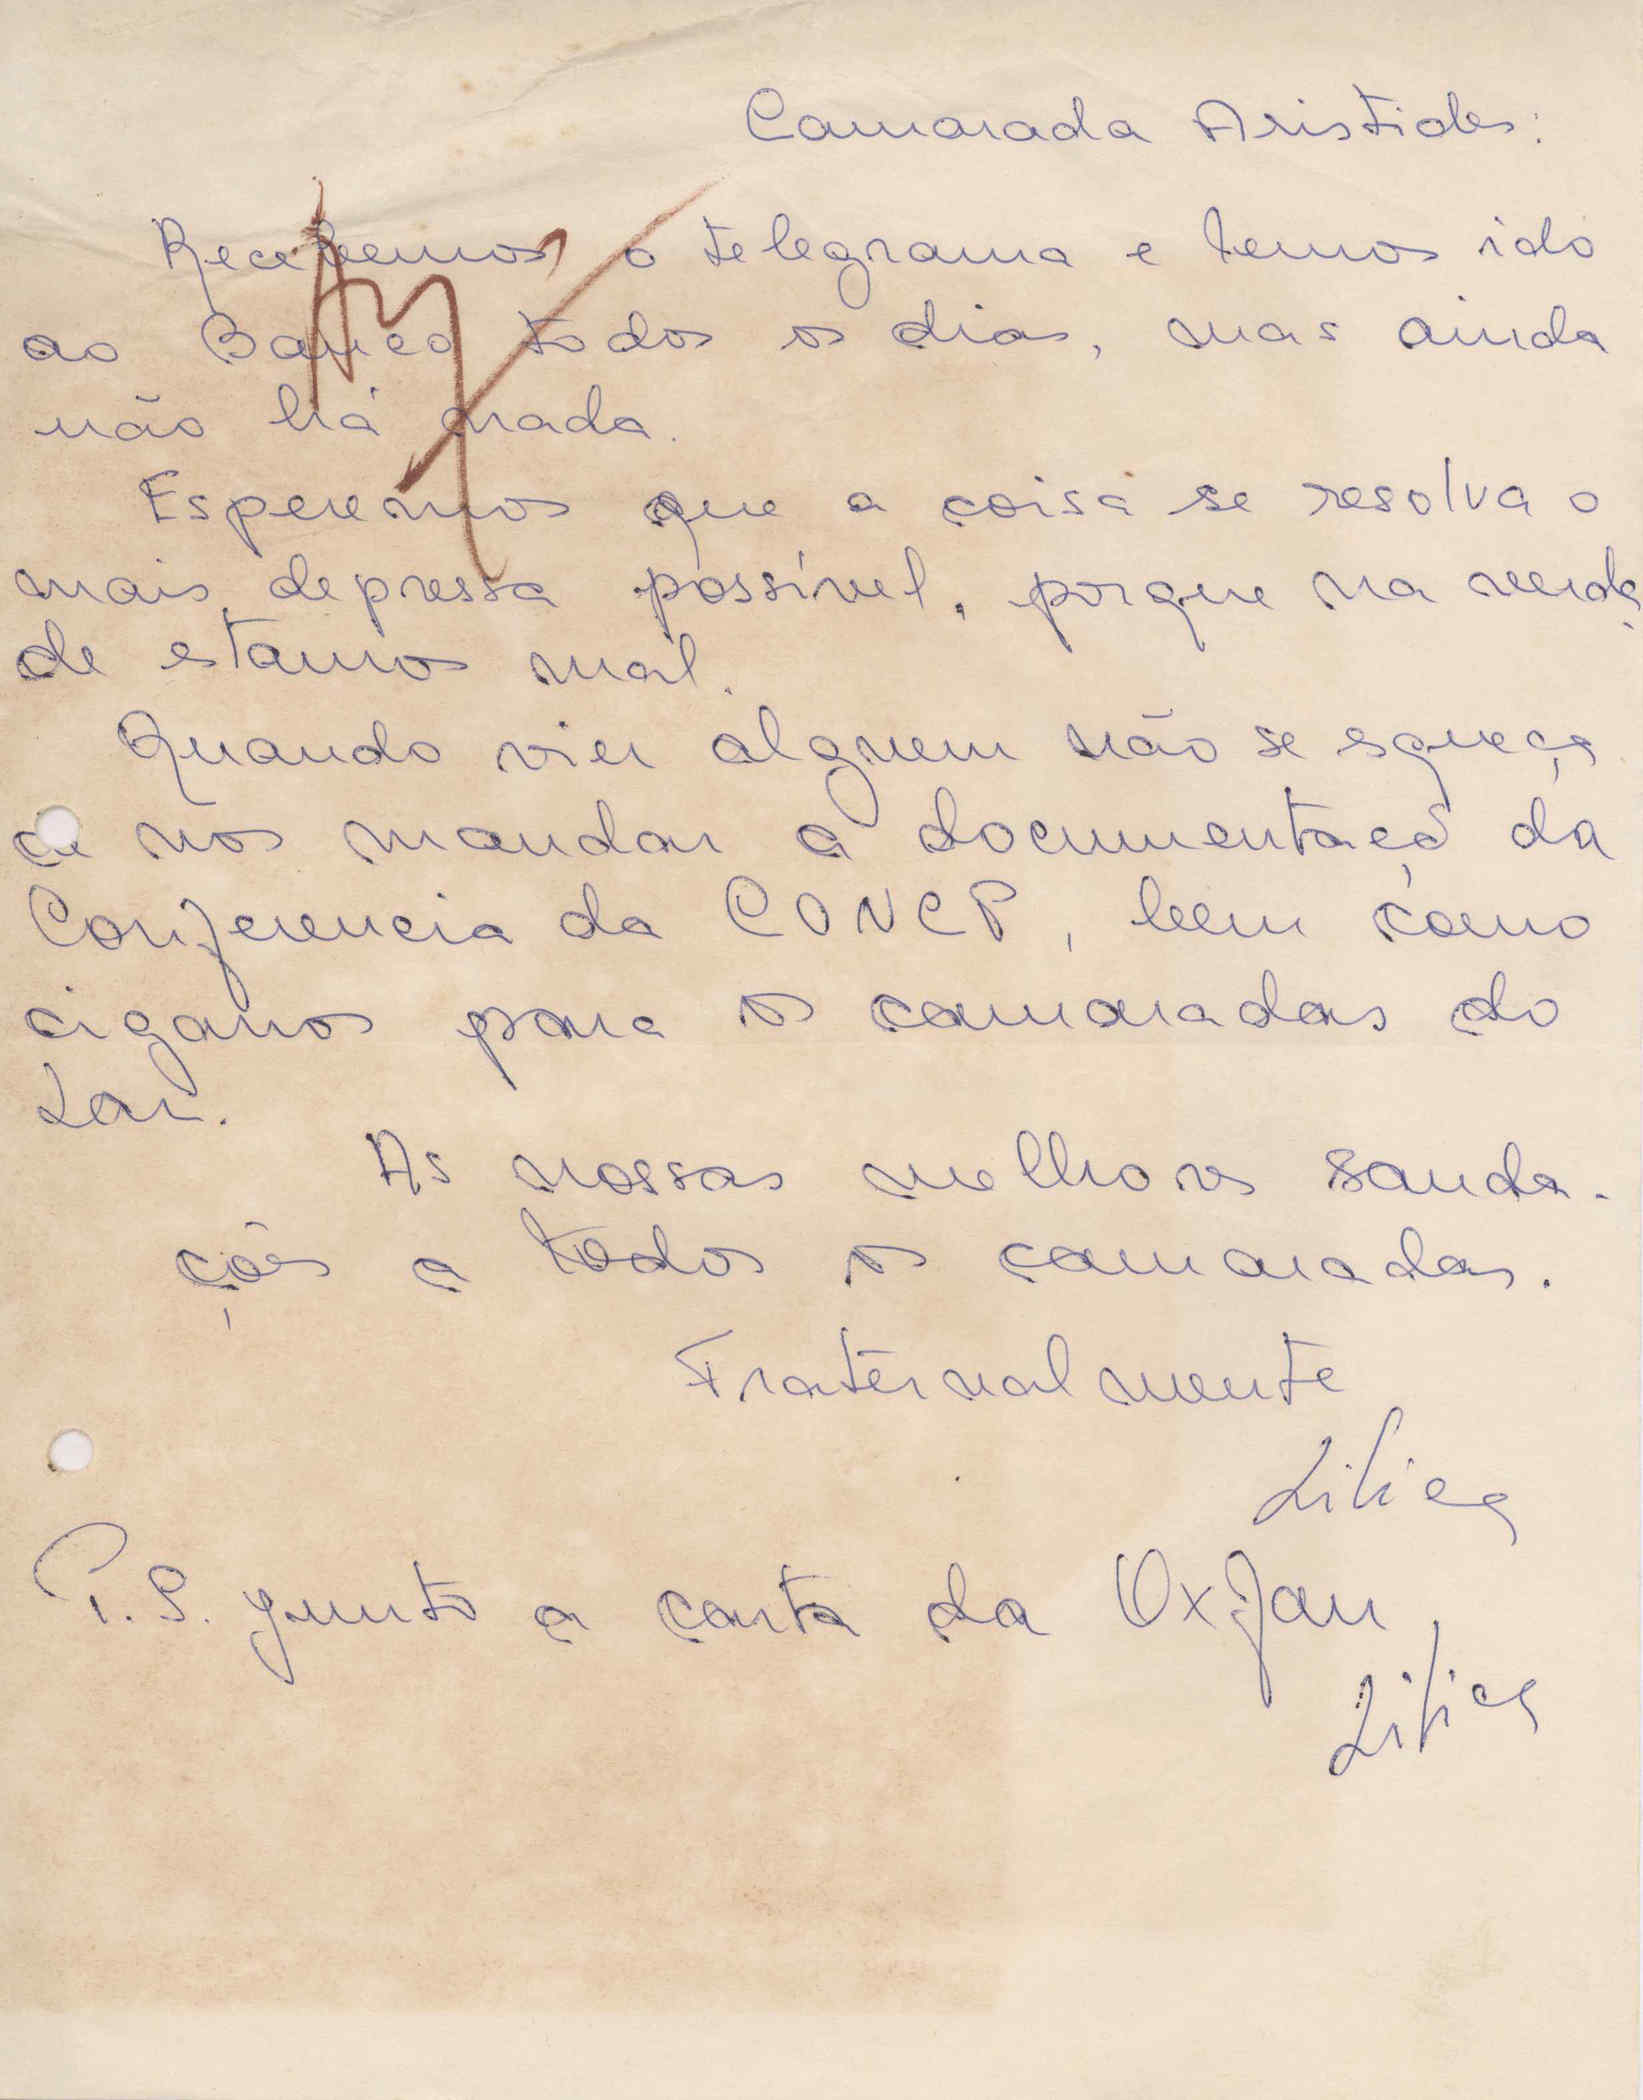 Camarada Aristides:
Recebemos o telegrama e temos ido
ao Banco todos os dias, mas ainda
não há nada.
Esperemos que a coisa se resolva o
mais depressa possível, porque na verda
de estamos mal.
Quando vier alguem não se esqueça
de nos mandar a documentaçõ da
Conferencia da CONCP, bem como
ciganos para os camaradas do
Lar.
As nossas melhores sauda-
ções a todos os camaradas.
Fraternalmente
Lilica
P.S. Junto a carta da Oxfan,
Lilica